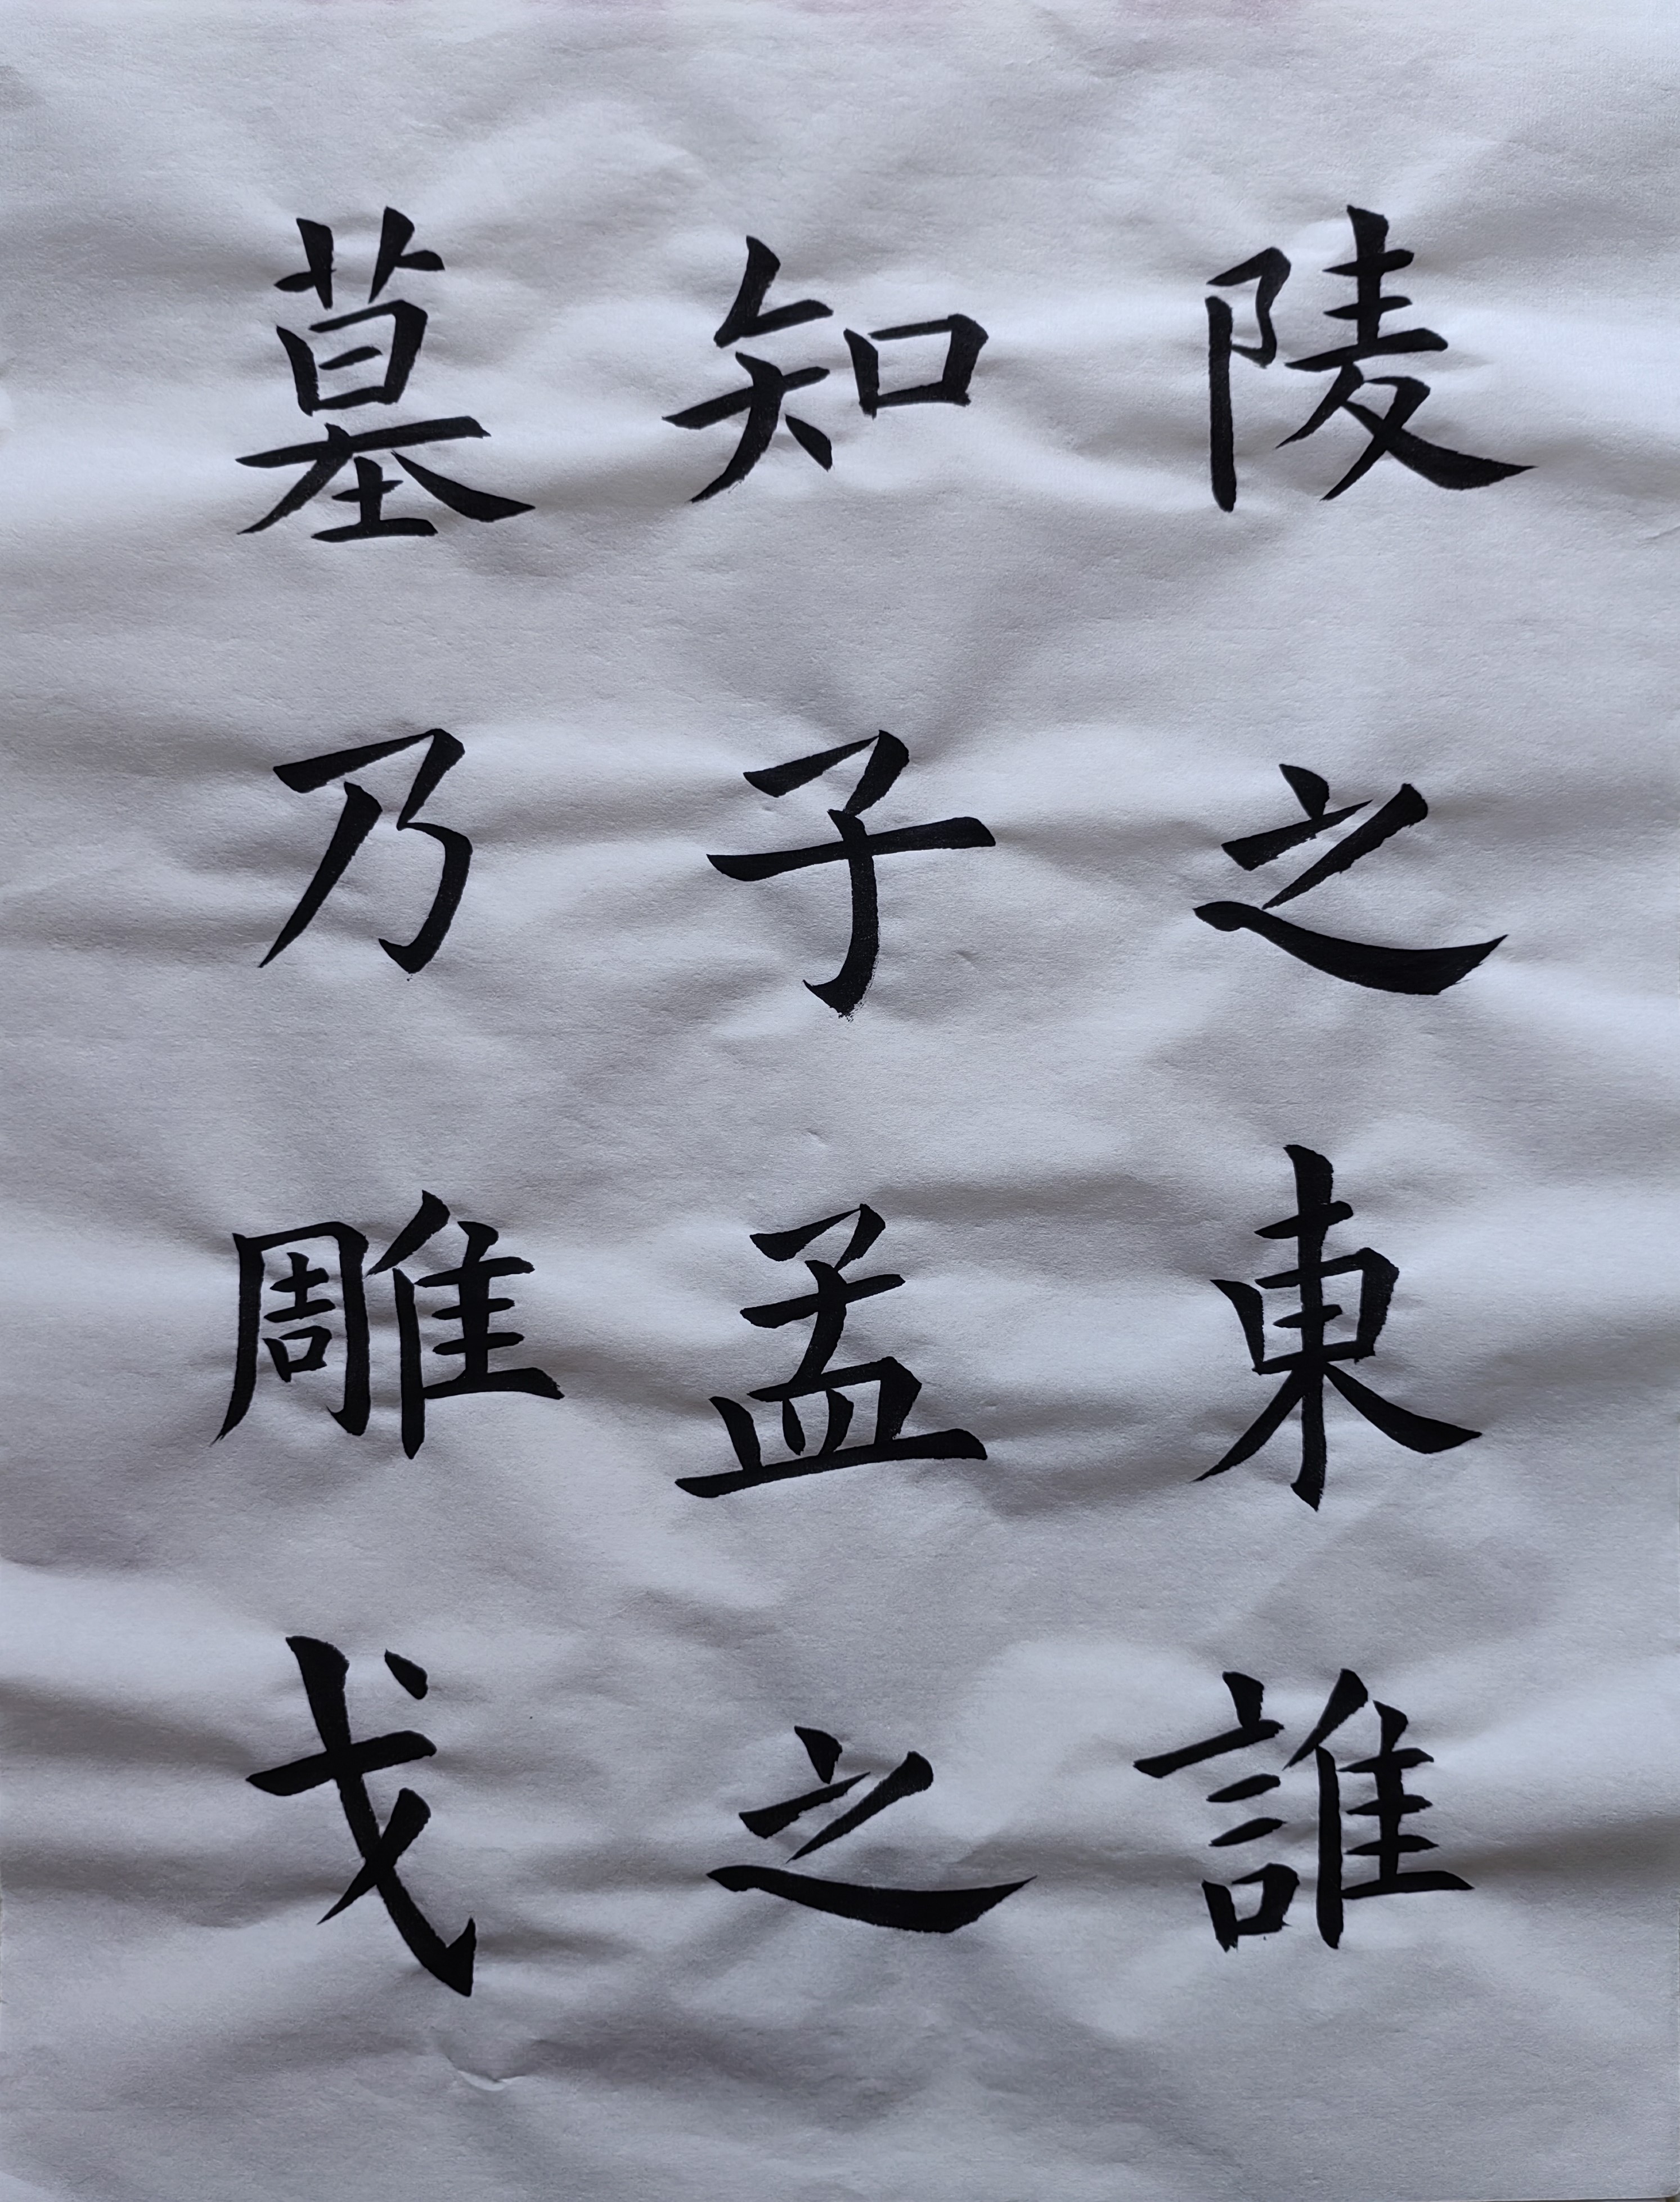 陵之東誰
知子孟之
墓乃雕戈